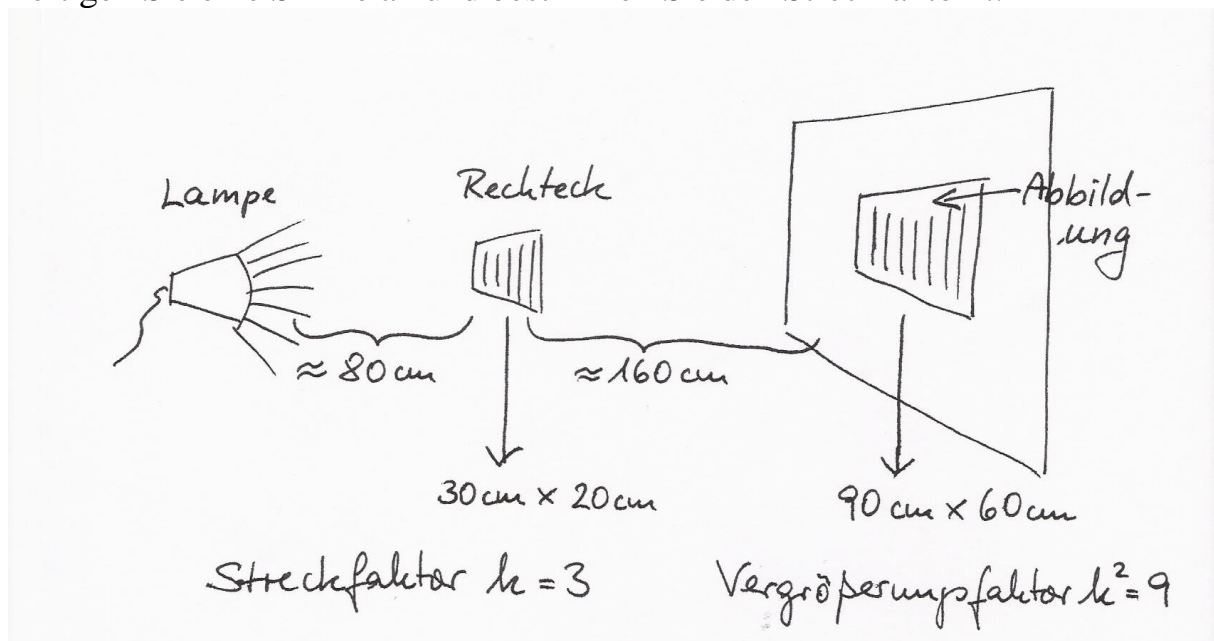 Lampe
Rechteck
Abbild-
ung
≈ 80 cm
≈ 160 cm
30 cm × 20 cm
90 cm × 60 cm
Streckfaktor k = 3
Vergrößerungsfaktor k² = 9